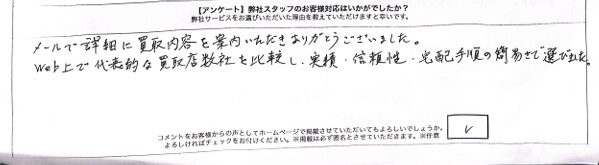 【アンケート】弊社スタッフのお客様対応はいかがでしたか？
弊社サービスをお選びいただいた理由を教えていただけますと幸いです。
メールで詳細に買取内容を案内いただきありがとうございました。
Web上で代表的な買取店数社を比較し、実績・信頼性・宅配手順の簡易さで選びました。
コメントをお客様からの声としてホームページで掲載させていただいてもよろしいでしょうか。
よろしければチェックをお付けください。※掲載は必ず匿名とさせていただきます。※任意